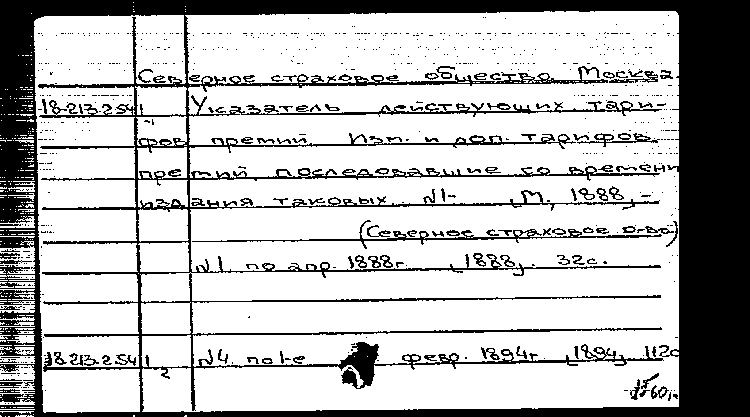 Северное страховое общество. Москва.
18-213-2541 Указатель действующих тари-
фов премий. Изм. и доп. тарифов
премий, последовавшие со времени
издания таковых. №1- [М., 1888]-
(Северное страховое о-во)
№1. по апр. 1888г. [1888]. 32с.
18-213-2541 №4. по 1-е февр. 1894г. [1894]. 112с
2